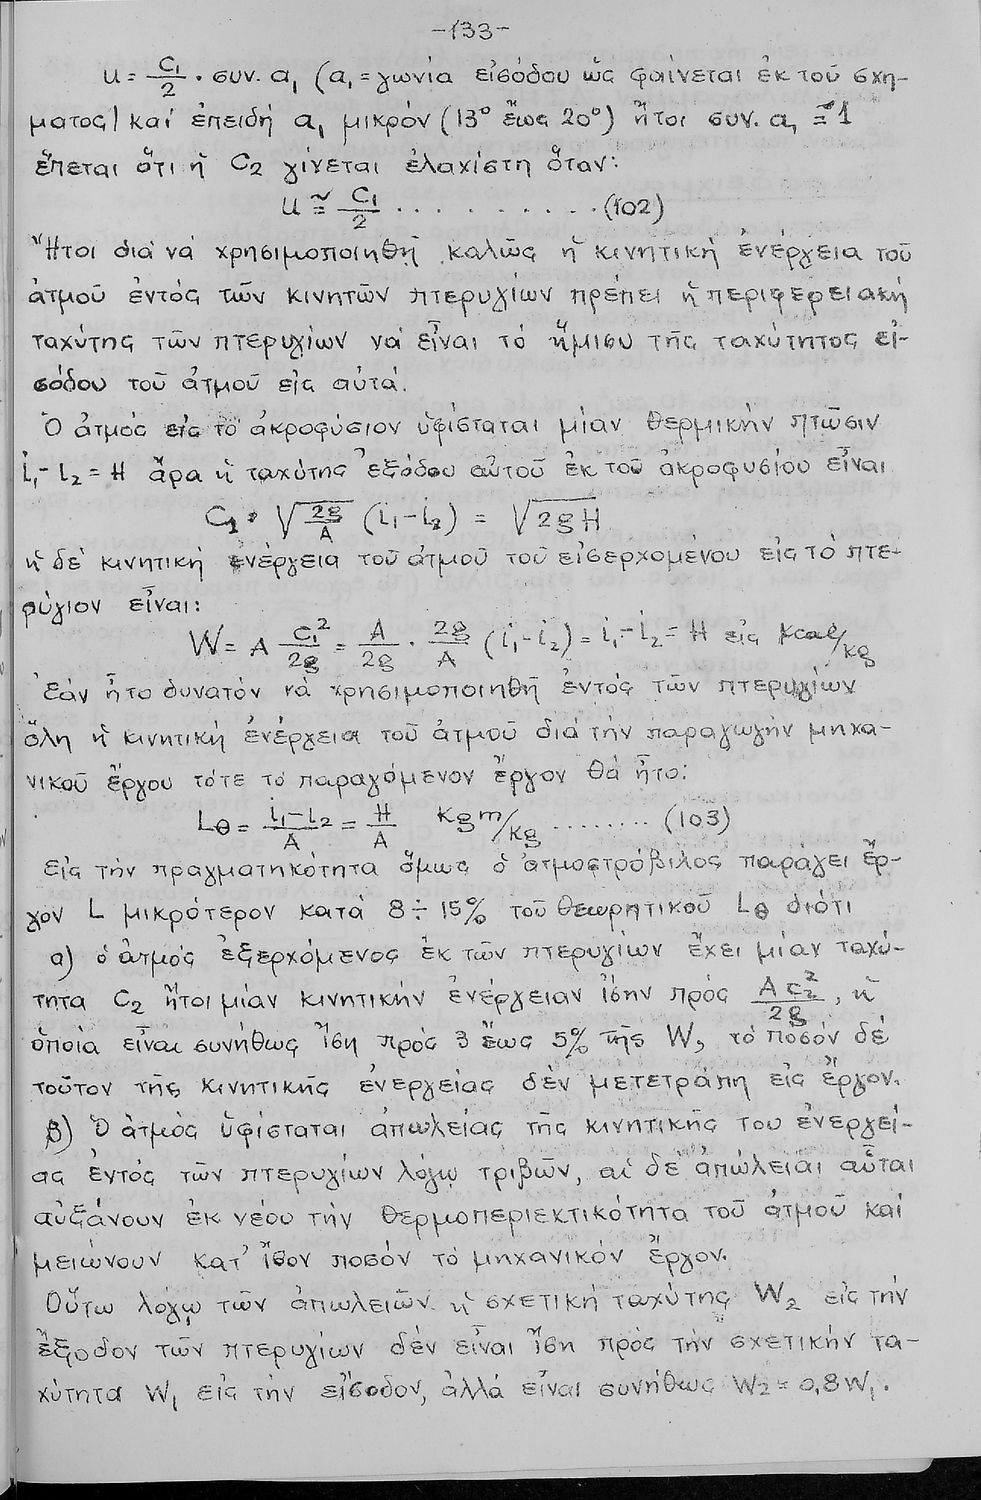 -133-
u = C₁/2 · συν. α₁ (α₁ = γωνία εἰσόδου ὡς φαίνεται ἐκ τοῦ σχή-
ματος) καί ἐπειδή α₁ μικρόν (13° ἕως 20°) ἤτοι συν. α₁ ≅ 1
ἕπεται ὅτι ἡ C₂ γίνεται ἐλαχίστη ὅταν:
u ≅ C₁/2 . . . . . . . . . . (102)
Ἤτοι διά νά χρησιμοποιηθῇ καλῶς ἡ κινητική ἐνέργεια τοῦ
ἀτμοῦ ἐντός τῶν κινητῶν πτερυγίων πρέπει ἡ περιφερειακή
ταχύτης τῶν πτερυγίων νά εἶναι τό ἥμισυ τῆς ταχύτητος εἰ-
σόδου τοῦ ἀτμοῦ εἰς αὐτά.
Ὁ ἀτμός εἰς τό ἀκροφύσιον ὑφίσταται μίαν θερμικήν πτῶσιν
i₁ - i₂ = H ἄρα ἡ ταχύτης ἐξόδου αὐτοῦ ἐκ τοῦ ἀκροφυσίου εἶναι
C₁ = √2g/A (i₁ - i₂) = √2gH
ἡ δέ κινητική ἐνέργεια τοῦ ἀτμοῦ τοῦ εἰσερχομένου εἰς τό πτε-
ρύγιον εἶναι:
W = A C₁²/2g = A/2g · 2g/A (i₁ - i₂) = i₁ - i₂ = H εἰς Kcal/kg
Ἐάν ἦτο δυνατόν νά χρησιμοποιηθῇ ἐντός τῶν πτερυγίων
ὅλη ἡ κινητική ἐνέργεια τοῦ ἀτμοῦ διά τήν παραγωγήν μηχα-
νικοῦ ἔργου τότε τό παραγόμενον ἔργον θά ἦτο:
Lθ = i₁ - i₂/A = H/A Kgm/Kg . . . . . . . . (103)
εἰς τήν πραγματικότητα ὅμως ὁ ἀτμοστρόβιλος παράγει ἔρ-
γον L μικρότερον κατά 8 ÷ 15% τοῦ θεωρητικοῦ Lθ διότι
α) ὁ ἀτμός ἐξερχόμενος ἐκ τῶν πτερυγίων ἔχει μίαν ταχύ-
τητα C₂ ἤτοι μίαν κινητικήν ἐνέργειαν ἴσην πρός A C₂²/2g, ἡ
ὁποία εἶναι συνήθως ἴση πρός 3 ἕως 5% τῆς W, τό ποσόν δέ
τοῦτον τῆς κινητικῆς ἐνεργείας δέν μετετράπη εἰς ἔργον.
β) Ὁ ἀτμός ὑφίσταται ἀπωλείας τῆς κινητικῆς του ἐνεργεί-
ας ἐντός τῶν πτερυγίων λόγῳ τριβῶν, αἱ δέ ἀπώλειαι αὗται
αὐξάνουν ἐκ νέου τήν θερμοπεριεκτικότητα τοῦ ἀτμοῦ καί
μειώνουν κατ' ἴσον ποσόν τό μηχανικόν ἔργον.
Οὕτω λόγῳ τῶν ἀπωλειῶν ἡ σχετική ταχύτης W₂ εἰς τήν
ἔξοδον τῶν πτερυγίων δέν εἶναι ἴση πρός τήν σχετικήν τα-
χύτητα W₁ εἰς τήν εἴσοδον, ἀλλά εἶναι συνήθως W₂ = 0,8 W₁.